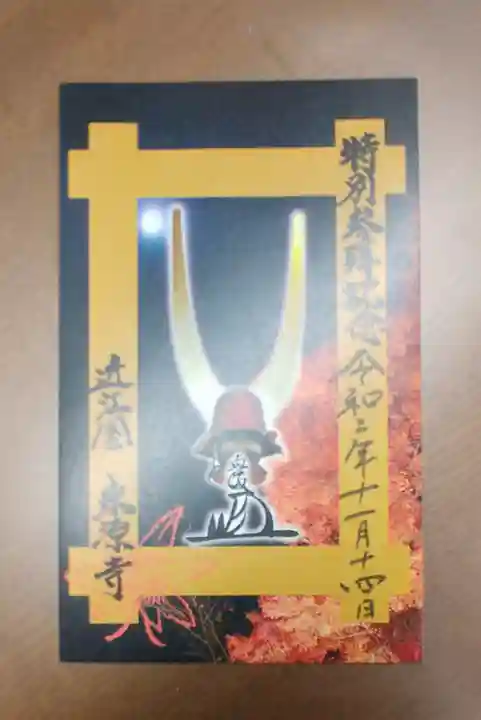 特別参拝記念 令和二年十一月十四日
近江国 永源寺